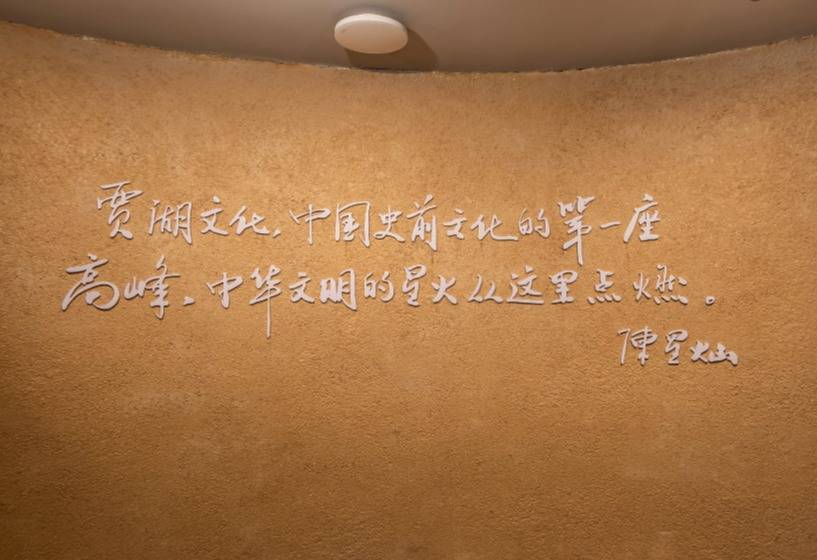 贾湖文化,中国史前文化的第一座
高峰,中华文明的星火从这里点燃。
陳星灿